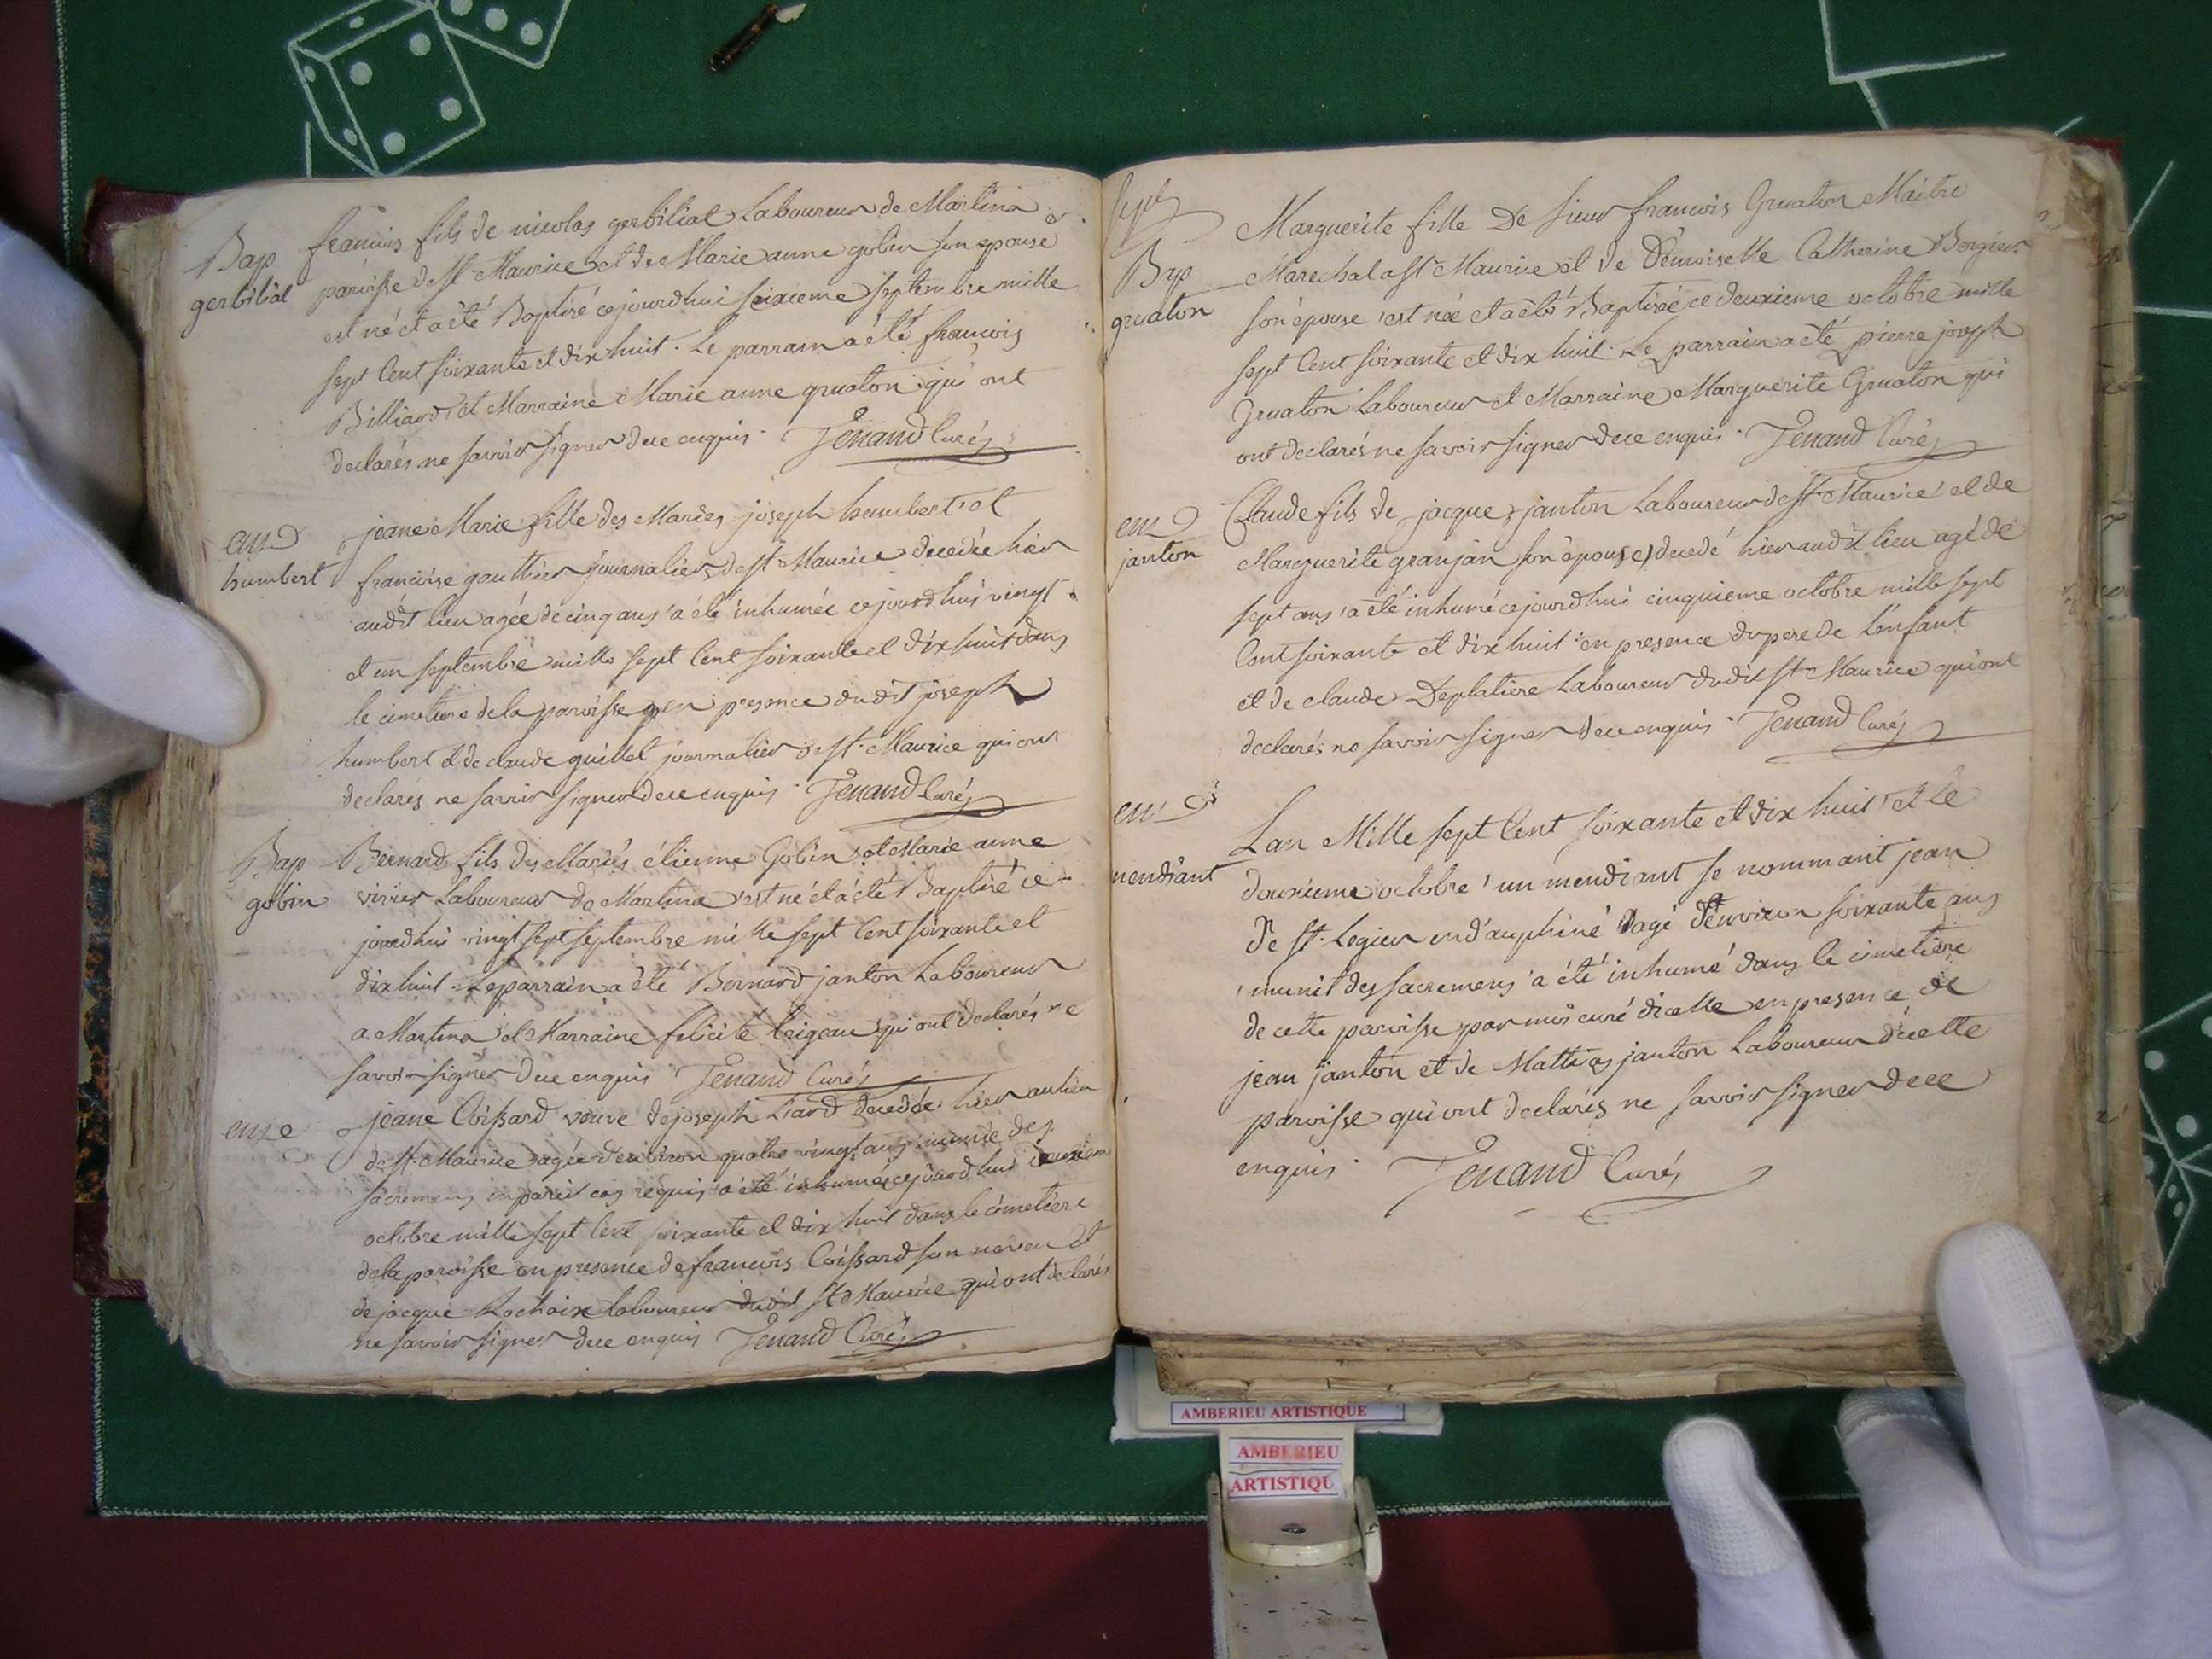 Bap
gerbilial
francois fils de nicolas gerbilial Laboureur de Martina
paroisse de st Maurice et de Marie anne gobin son epouse
est né et a été Baptisé cejourdhui seizieme septembre mille
sept Cent soixante et dix huit. Le parrain a été francois
Billiard et Marraine Marie anne gruaton qui ont
declarés ne savoir signer dece enquis. Tenand Curé
humbert
jeane Marie fille des Mariés joseph humbert et
francoise gauthier journaliers de st Maurice decedée hier
audit lieu agée de cinq ans a été inhumée cejourdhui vingt
et un septembre mille sept Cent soixante et dix huit dans
le cimetiere de la paroisse en presence dudit joseph
humbert et de claude guillet journalier de st. Maurice qui ont
declarés ne savoir signer dece enquis. Tenand Curé
Bap
gobin
Bernard fils des Mariés étienne Gobin et Marie anne
Laboureur de Martina est né et a été Baptisé ce
jourdhui vingt sept septembre mille sept Cent soixante et
dix huit. Le parrain a été Bernard janton Laboureur
a Martina et Marraine felicité qui ont declarés ne
savoir signer dece enquis Tenand Curé
jeane Coissard veuve de joseph Liard decedée hier au lieu
de st. Maurice agée denviron quatre vingt ans munie des
sacremens en pareil cas requis a été inhumée cejourdhui
octobre mille sept Cent soixante et dix huit dans le cimetiere
de la paroisse en presence de francois Coissard son neveu et
de jacque Lachaix laboureur dudit st Maurice qui ont declarés
ne savoir signer dece enquis Tenand Curé
sept
Bap
gruaton
Marguerite fille De sieur francois Gruaton Maitre
Marechal a st Maurice et de Demoiselle Catherine
son épouse est née et a été Baptisée ce deuxieme octobre mille
sept Cent soixante et dix huit. Le parrain a été pierre joseph
Gruaton Laboureur et Marraine Marguerite Gruaton qui
ont declarés ne savoir signer dece enquis. Tenand Curé
janton
Claude fils de jacque janton Laboureur de st Maurice et de
Marguerite granjan son épouse decedé hier audit lieu agé de
sept ans a été inhumé cejourdhui cinquieme octobre mille sept
Cent soixante et dix huit en presence du pere de Lenfant
et de claude Deplatiere Laboureur dudit st Maurice qui ont
declarés ne savoir signer dece enquis. Tenand Curé
mendiant
Lan Mille sept Cent soixante et dix huit et Le
douzieme octobre un mendiant se nommant jean
De st. Legier en dauphiné agé denviron soixante ans
munit des sacremens a été inhumé dans le cimetiere
de cette paroisse par moi curé dicelle en presence de
jean janton et de Mathias janton Laboureur dicelle
paroisse qui ont declarés ne savoir signer dece
enquis. Tenand Curé
AMBERIEU ARTISTIQUE
AMBERIEU
ARTISTIQU